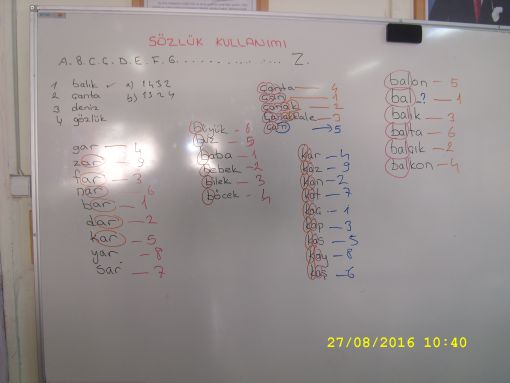 SÖZLÜK KULLANIMI
A.B.C.Ç.D.E.F.G. . . . . . . . . . . . . Z.
1 balık ✓ a) 1 4 3 2
2 çanta b) 1 3 2 4
3 deniz
4 gözlük
gar — 4
zar — 9
far — 3
nar 6
bar — 1
dar — 2
kar — 5
yar — 8
sar — 7
büyük — 6
biz — 5
baba — 1
bebek — 2
bilek — 3
böcek — 4
çanta — 4
çan — 1
çanak — 2
Çanakkale — 3
can → 5
kar — 4
kaz — 9
kan — 2
kat — 7
kaç — 1
kap — 3
kas — 5
kay — 8
kaş — 6
balon — 5
bal — ? — 1
balık — 3
balta — 6
balçık — 2
balkon — 4
27/08/2016 10:40